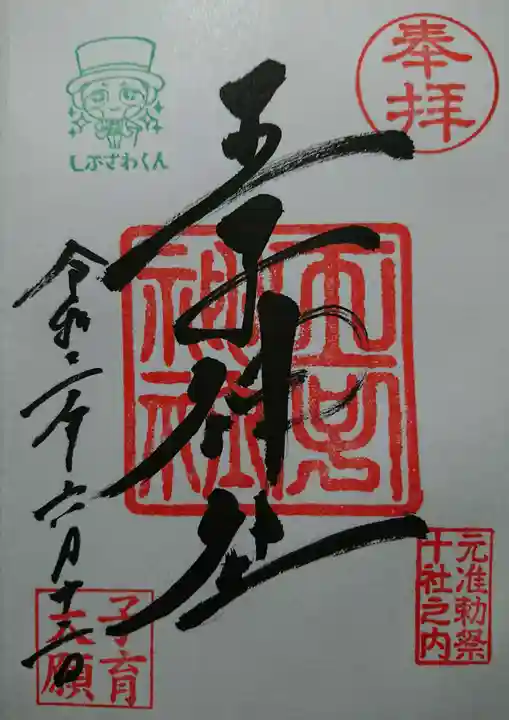 奉拝
しぶざわくん
王子神社
王子神社
令和二年六月十三日
元准勅祭
十社之内
子育
大願